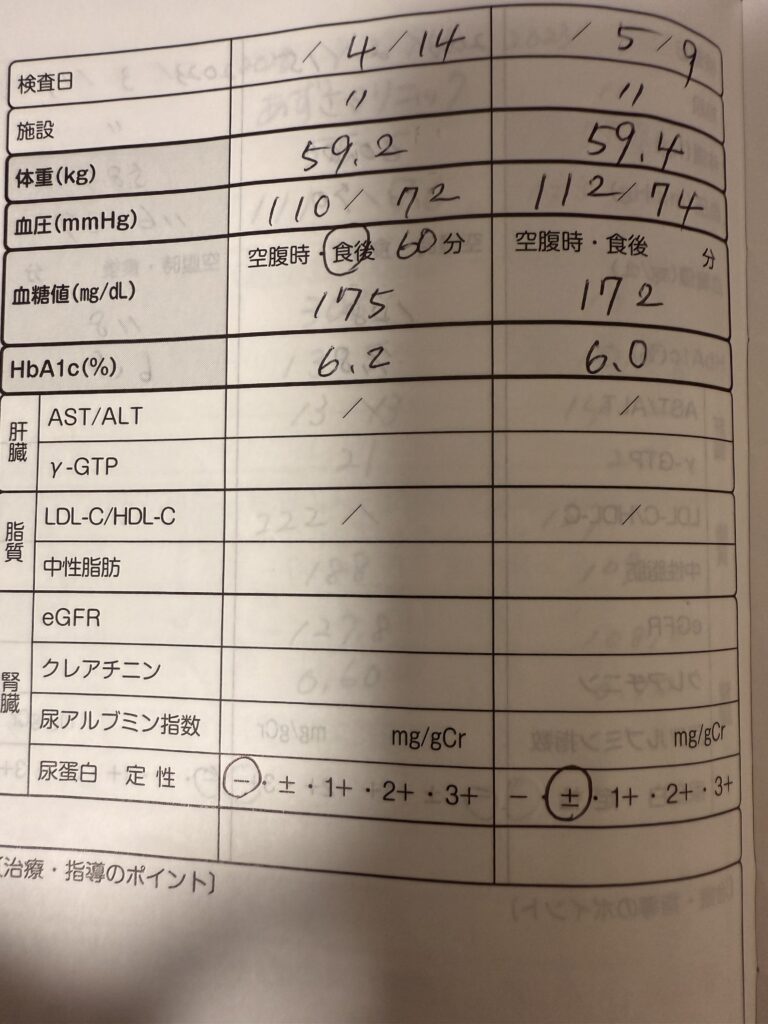 検査日 / 4 / 14 / 5 / 9
施設 〃 〃
体重(kg) 59.2 59.4
血圧(mmHg) 110 / 72 112 / 74
血糖値(mg/dL) 空腹時・食後 60分 空腹時・食後 分
175 172
HbA1c(%) 6.2 6.0
肝臓 AST/ALT / /
γ-GTP
脂質 LDL-C/HDL-C / /
中性脂肪
腎臓 eGFR
クレアチニン
尿アルブミン指数 mg/gCr mg/gCr
尿蛋白 定性 −・±・1+・2+・3+ −・±・1+・2+・3+
〔治療・指導のポイント〕